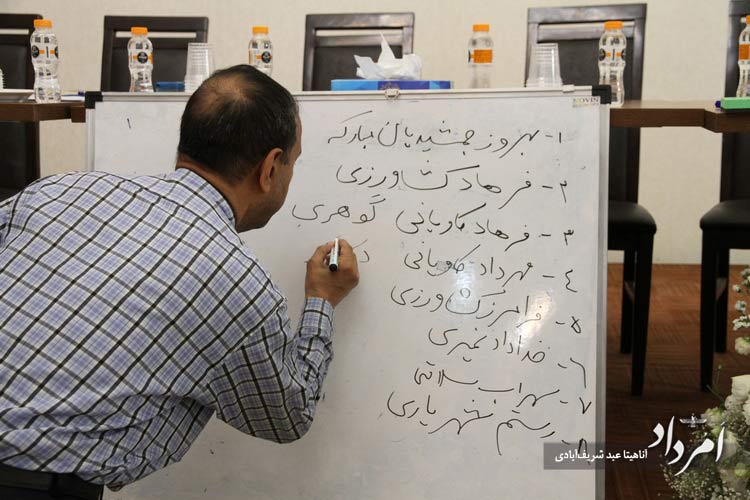 ۱- بهروز جمشیدیان مبارکه
۲- فرهاد کشاورزی
۳- فرهاد کاویانی گوهری
۴- مهرداد کاویانی
۵- فرامرز کشاورزی
۶- خداداد نمیری
۷- سهراب سلامتی
۸- رستم شهریاری
MOVIN
اَمرداد
آناهیتا عبد شریف‌آبادی